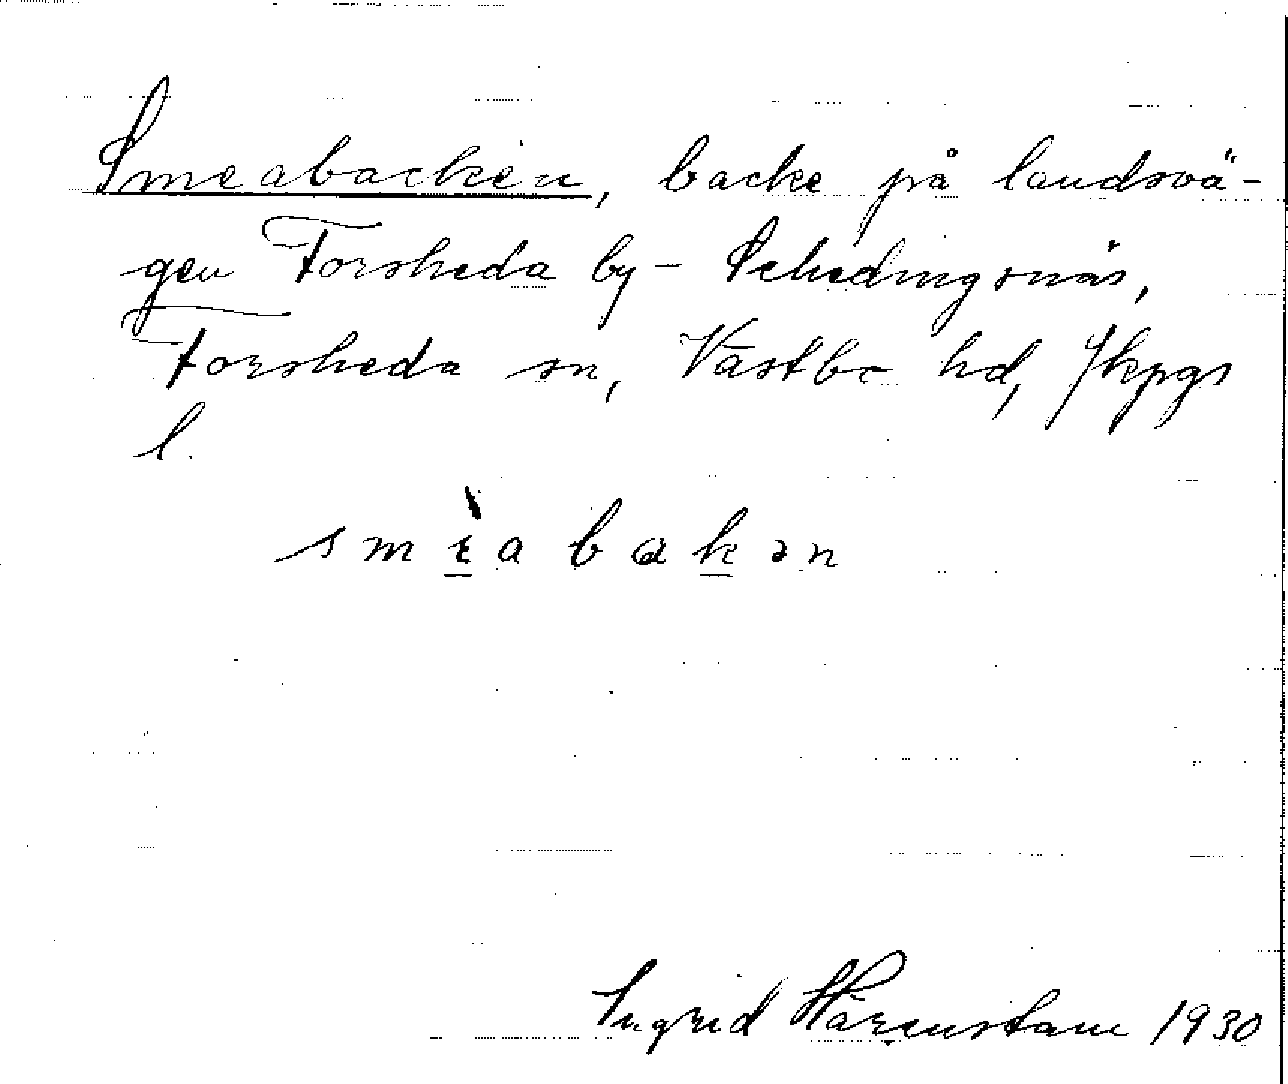 Smeabacken, backe på landsvä-
gen Forsheda by - Schedingsnäs,
Forsheda sn, Västbo hd, Jkpgs
l.
smɩ̀abakən
Ingrid Härenstam 1930